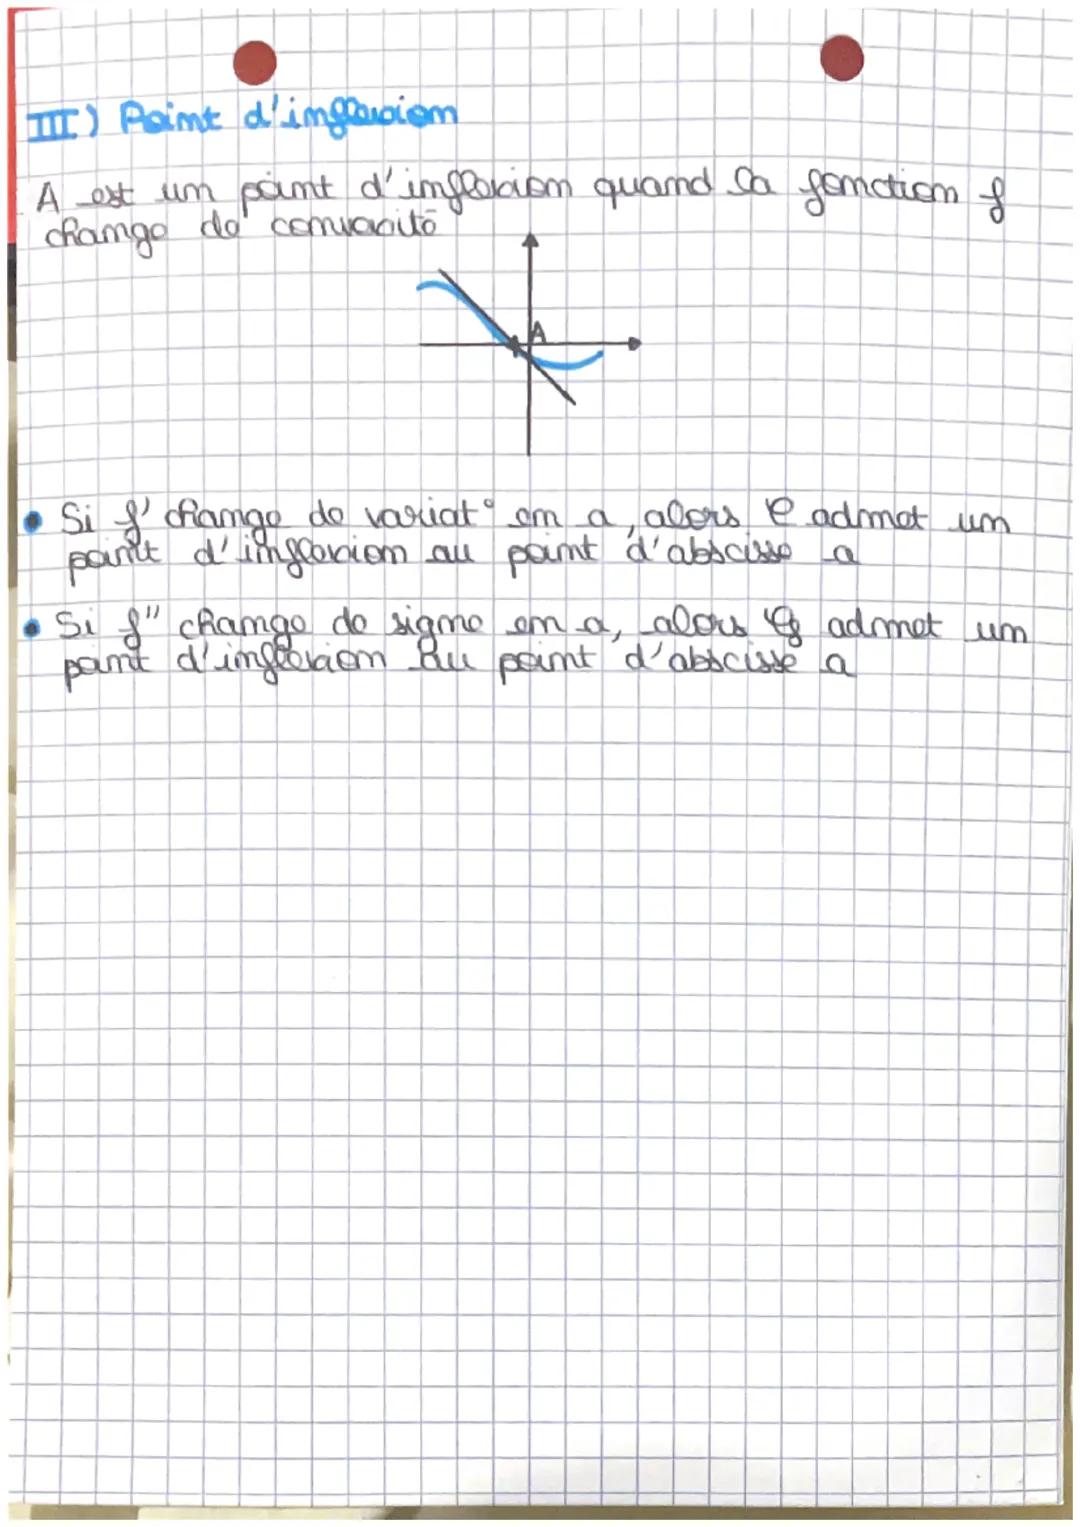 III) Point d'inflexion
A est un point d'inflexion quand la fonction f
change de convexité
A
Si f' change de variat° en a, alors C admet un
point d'inflexion au point d'abscisse a
Si f'' change de signe en a, alors Cf admet un
point d'inflexion au point d'abscisse a